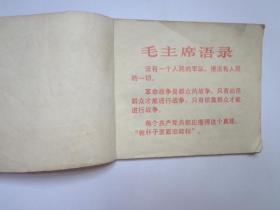 毛主席语录
没有一个人民的军队，便没有人民
的一切。
革命战争是群众的战争，只有动员
群众才能进行战争，只有依靠群众才能
进行战争。
每个共产党员都应懂得这个真理：
“枪杆子里面出政权”。